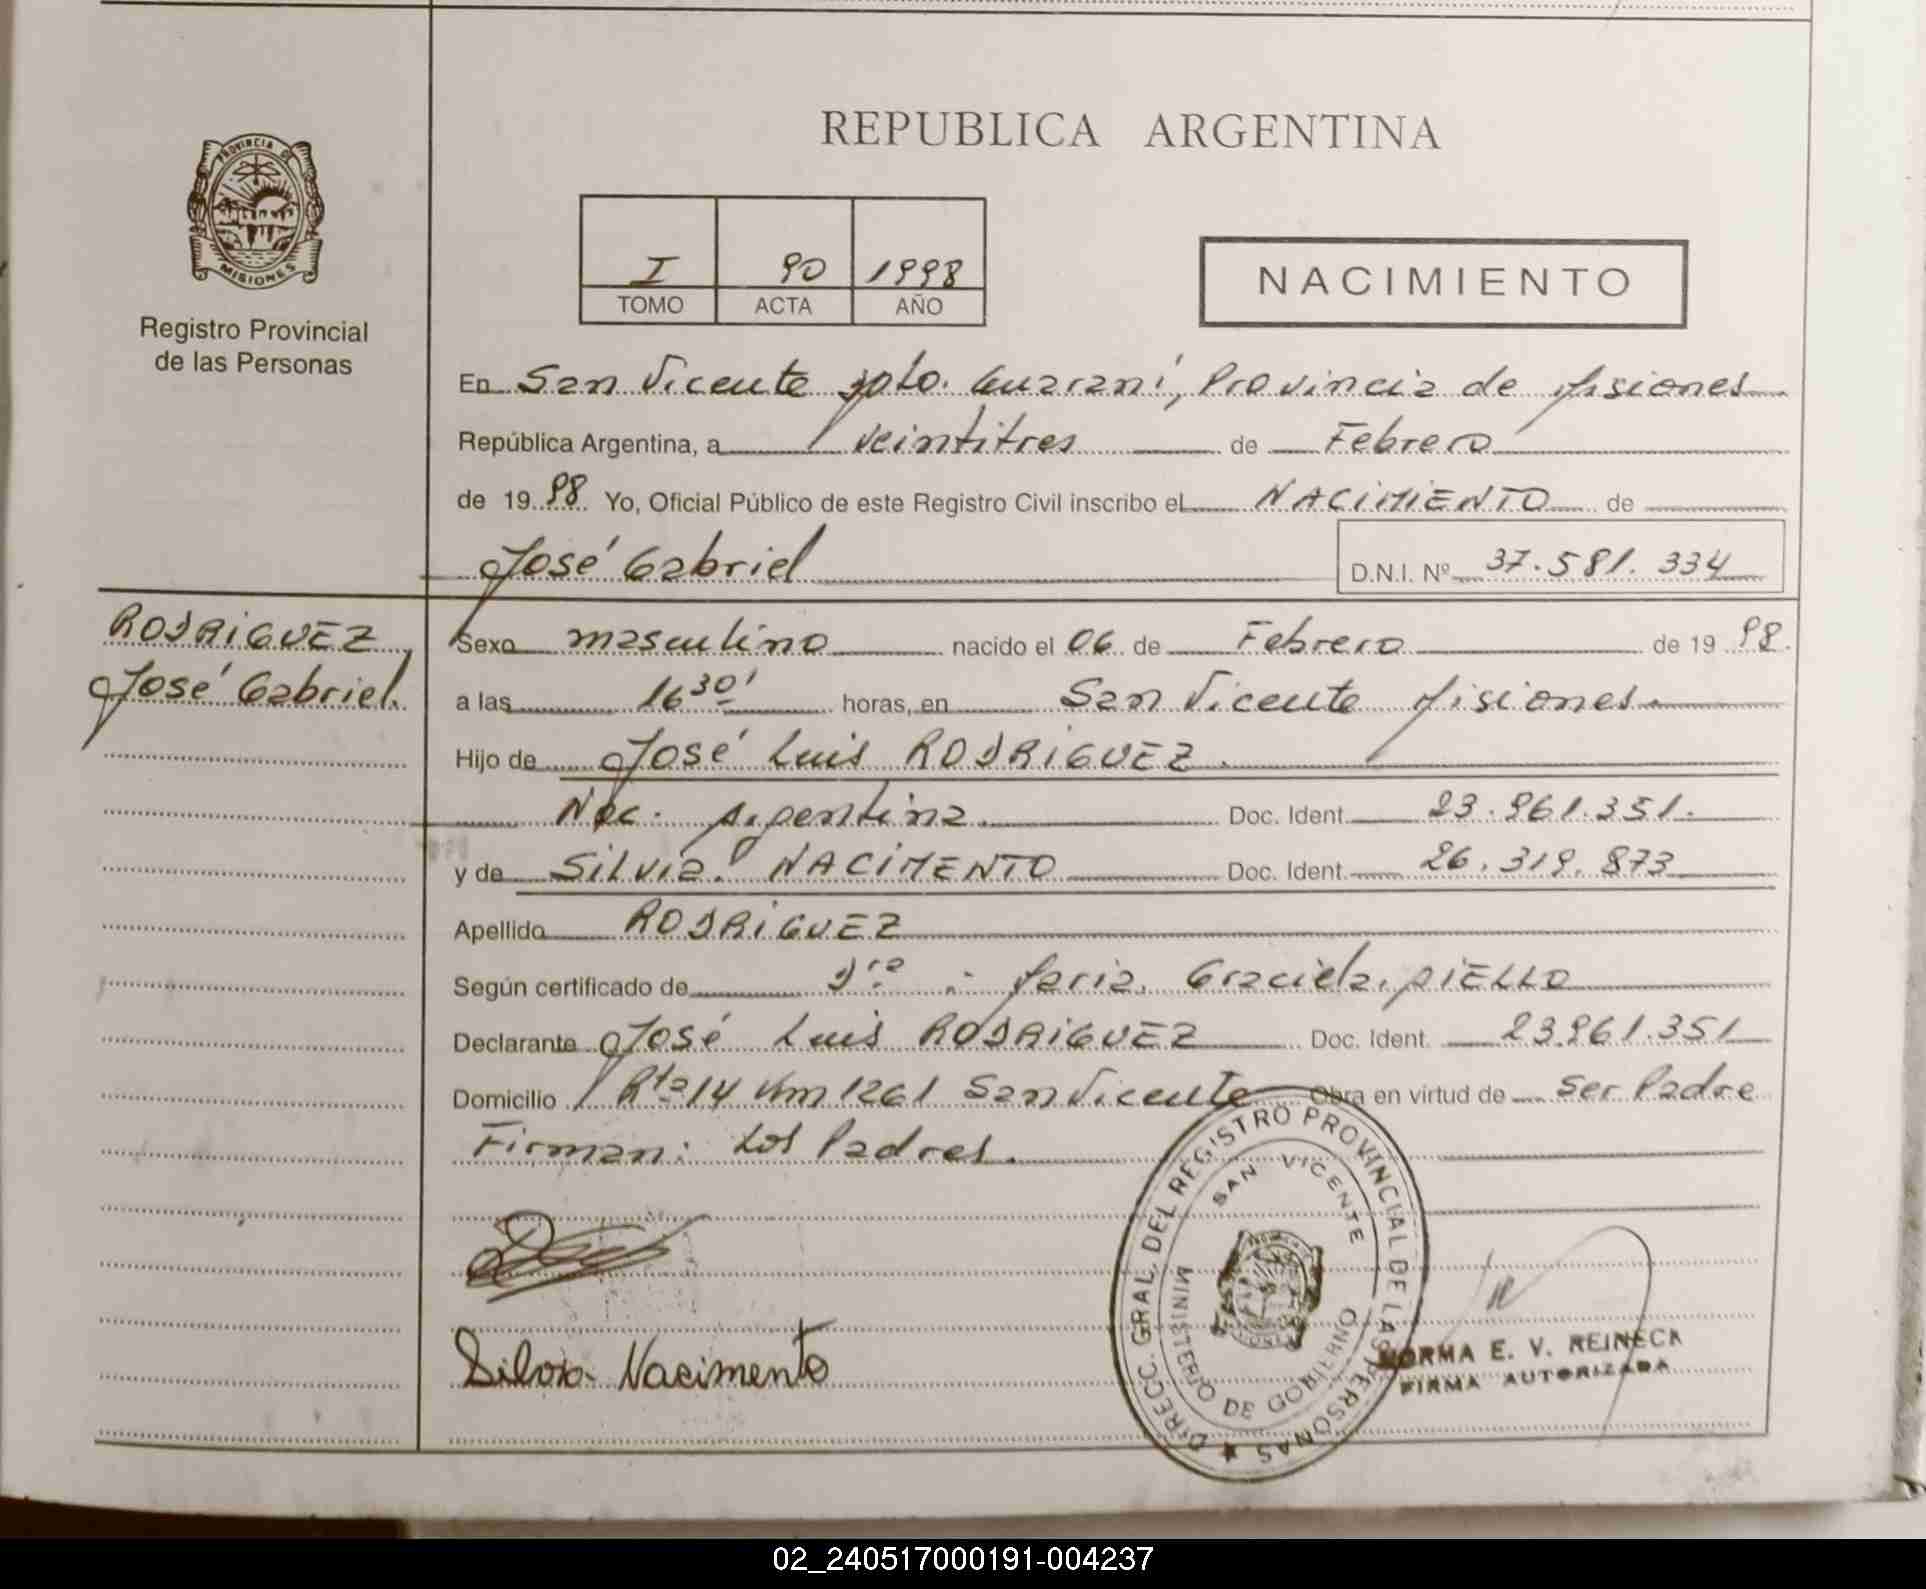 REPUBLICA ARGENTINA
PROVINCIA DE
MISIONES
Registro Provincial
de las Personas
I 90 1998
TOMO ACTA AÑO
NACIMIENTO
En San Vicente Dpto. Guaraní, Provincia de Misiones
República Argentina, a veintitres de Febrero
de 1998 Yo, Oficial Público de este Registro Civil inscribo el NACIMIENTO de
José Gabriel D.N.I. Nº 37.581.334
RODRIGUEZ
José Gabriel.
Sexo masculino nacido el 06 de Febrero de 1998.
a las 16 30' horas, en San Vicente Misiones.
Hijo de José Luis RODRIGUEZ.
Nac. Argentina Doc. Ident. 23.961.351.
y de Silvia NACIMENTO Doc. Ident. 26.319.873
Apellido RODRIGUEZ
Según certificado de Dra: Maria Graciela
Declarante José Luis RODRIGUEZ Doc. Ident. 23.961.351
Domicilio Rta 14 Km 1261 San Vicente Obra en virtud de Ser Padre
Firman: Los Padres.
Silvia Nacimento
DIRECC. GRAL. DEL REGISTRO PROVINCIAL DE LAS PERSONAS
SAN VICENTE
MINISTERIO DE GOBIERNO
NORMA E. V. REINECK
FIRMA AUTORIZADA
02_240517000191-004237